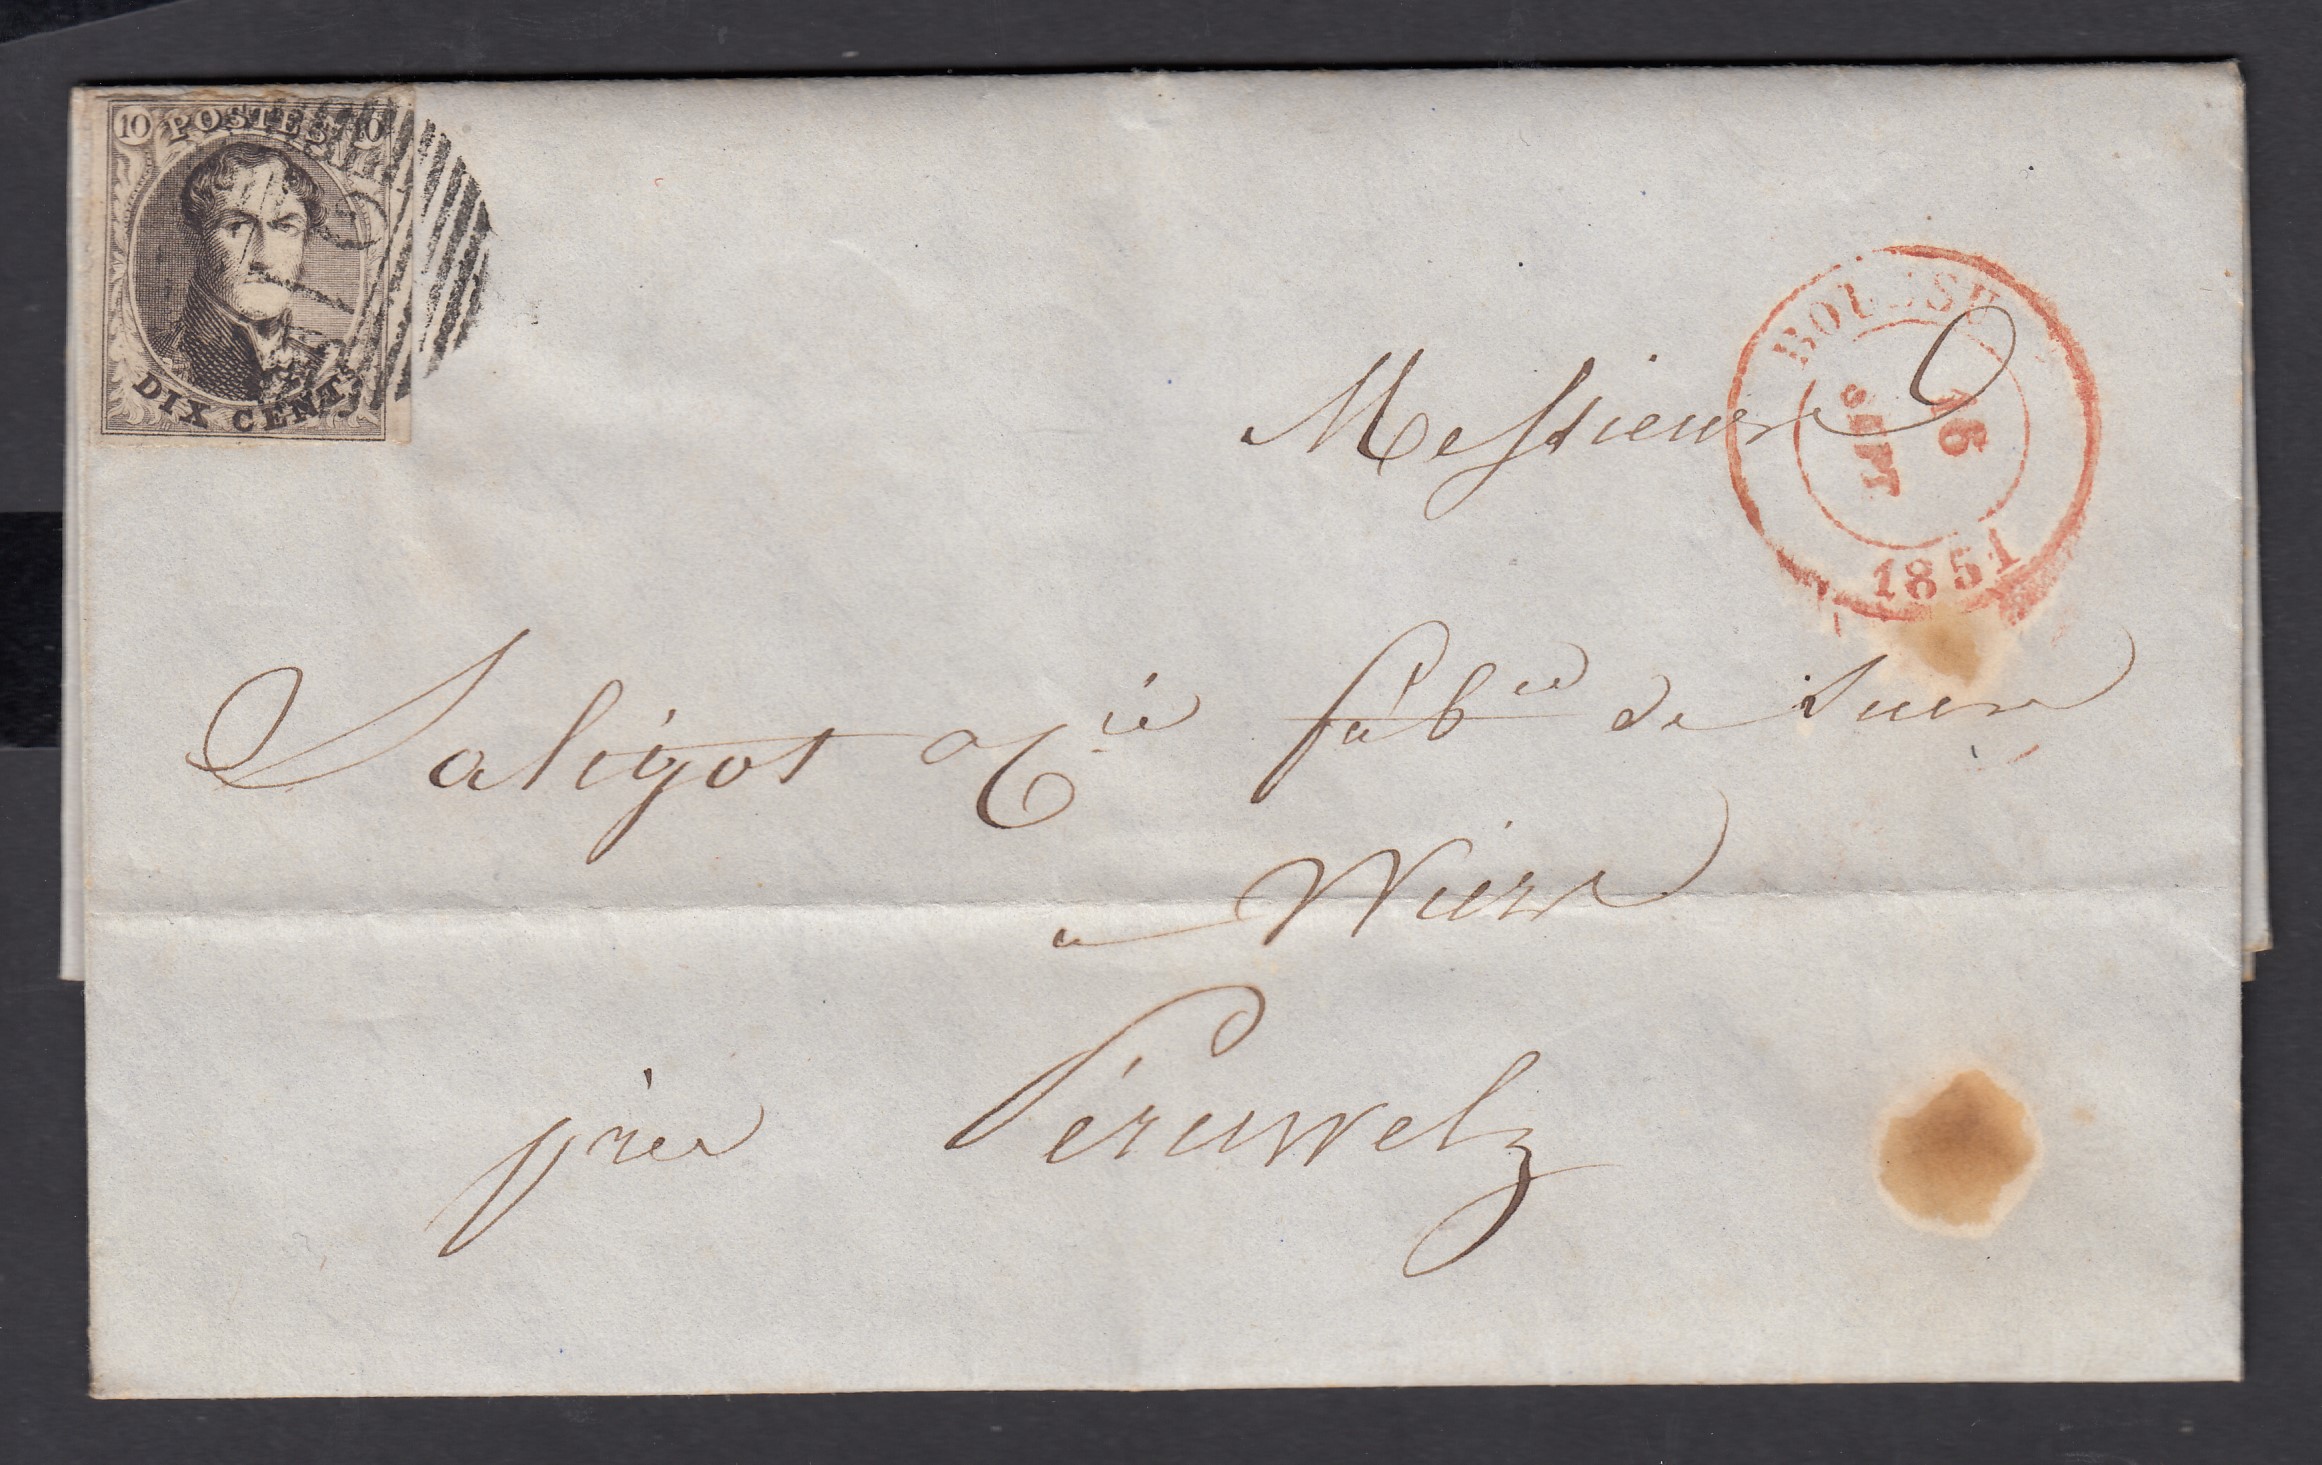 10 POSTES 10
DIX CENTS
BOUSSU
16
SEPT
1851
Messieurs
Saligot & Cie fabts de sucre
a Wiers
près Péruwelz